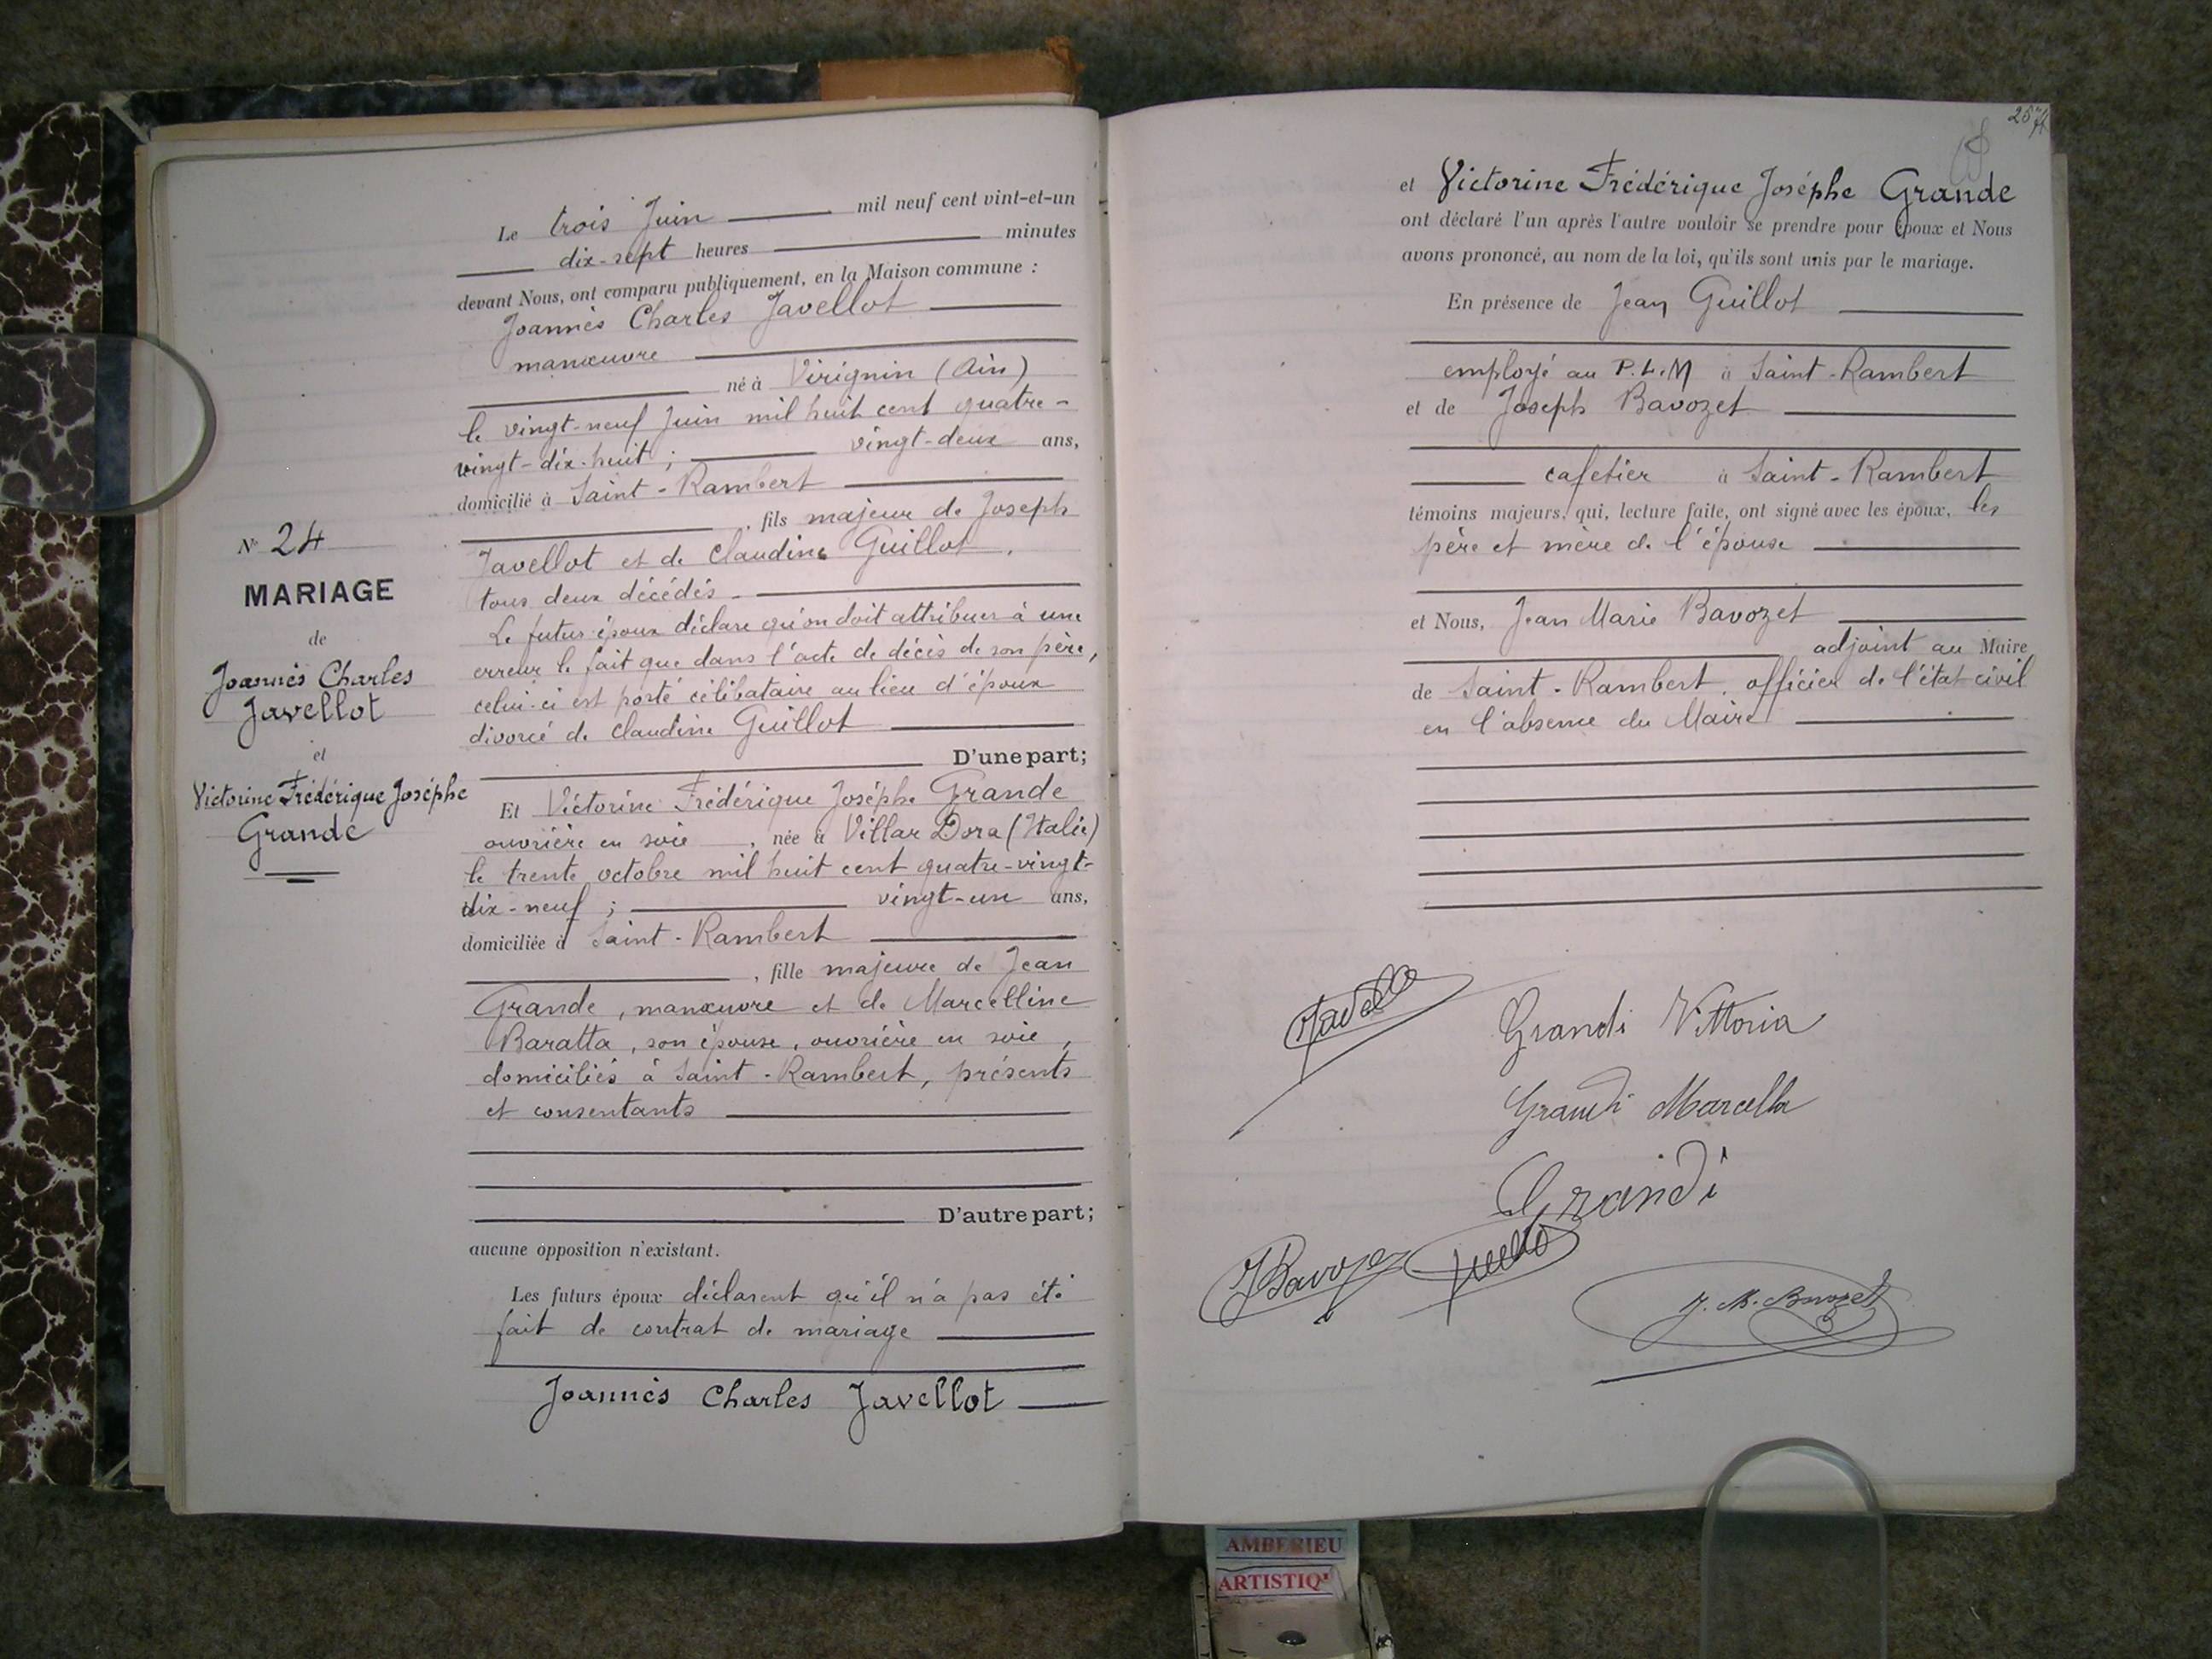 Le trois Juin mil neuf cent vint-et-un
dix-sept heures minutes
devant Nous, ont comparu publiquement, en la Maison commune :
Joannès Charles Javellot
manœuvre
né à Virignin (Ain)
le vingt-neuf Juin mil huit cent quatre-
vingt-dix-huit ; vingt-deux ans,
domicilié à Saint-Rambert
, fils majeur de Joseph
Javellot et de Claudine Guillot,
tous deux décédés
Le futur époux déclare qu'on doit attribuer à une
erreur le fait que dans l'acte de décès de son père,
celui-ci est porté célibataire au lieu d'époux
divorcé de Claudine Guillot
D'une part;
N° 24
MARIAGE
de
Joannès Charles
Javellot
et
Victorine Frédérique Joséphe
Grande
Et Victorine Frédérique Joséphe Grande
ouvrière en soie, née à Villar Dora (Italie)
le trente octobre mil huit cent quatre-vingt-
dix-neuf ; vingt-un ans,
domiciliée à Saint-Rambert
, fille majeure de Jean
Grande, manœuvre et de Marcelline
Baratta, son épouse, ouvrière en soie,
domiciliés à Saint-Rambert, présents
et consentants
D'autre part;
aucune opposition n'existant.
Les futurs époux déclarent qu'il n'a pas été
fait de contrat de mariage
Joannès Charles Javellot
et Victorine Frédérique Joséphe Grande
ont déclaré l'un après l'autre vouloir se prendre pour époux et Nous
avons prononcé, au nom de la loi, qu'ils sont unis par le mariage.
En présence de Jean Guillot
employé au P.L.M à Saint-Rambert
et de Joseph Bavozet
cafetier à Saint-Rambert
témoins majeurs, qui, lecture faite, ont signé avec les époux, les
père et mère de l'épouse
et Nous, Jean Marie Bavozet
adjoint au Maire
de Saint-Rambert, officier de l'état civil
en l'absence du Maire
Grandi Vittoria
Grandi Marcella
Grandi
J Bavozet
J. M. Bavozet
AMBERIEU
ARTISTIQ